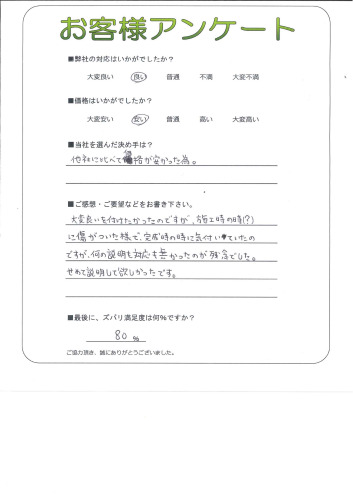 お客様アンケート
■弊社の対応はいかがでしたか？
大変良い　良い　普通　不満　大変不満
■価格はいかがでしたか？
大変安い　安い　普通　高い　大変高い
■当社を選んだ決め手は？
他社に比べて価格が安かった為。
■ご感想・ご要望などをお書き下さい。
大変良いを付けたかったのですが、施工時の時(?)
に傷がついた様で、完成時の時に気付いていたの
ですが、何の説明も対応も無かったのが残念でした。
せめて説明して欲しかったです。
■最後に、ズバリ満足度は何％ですか？
80 %
ご協力頂き、誠にありがとうございました。